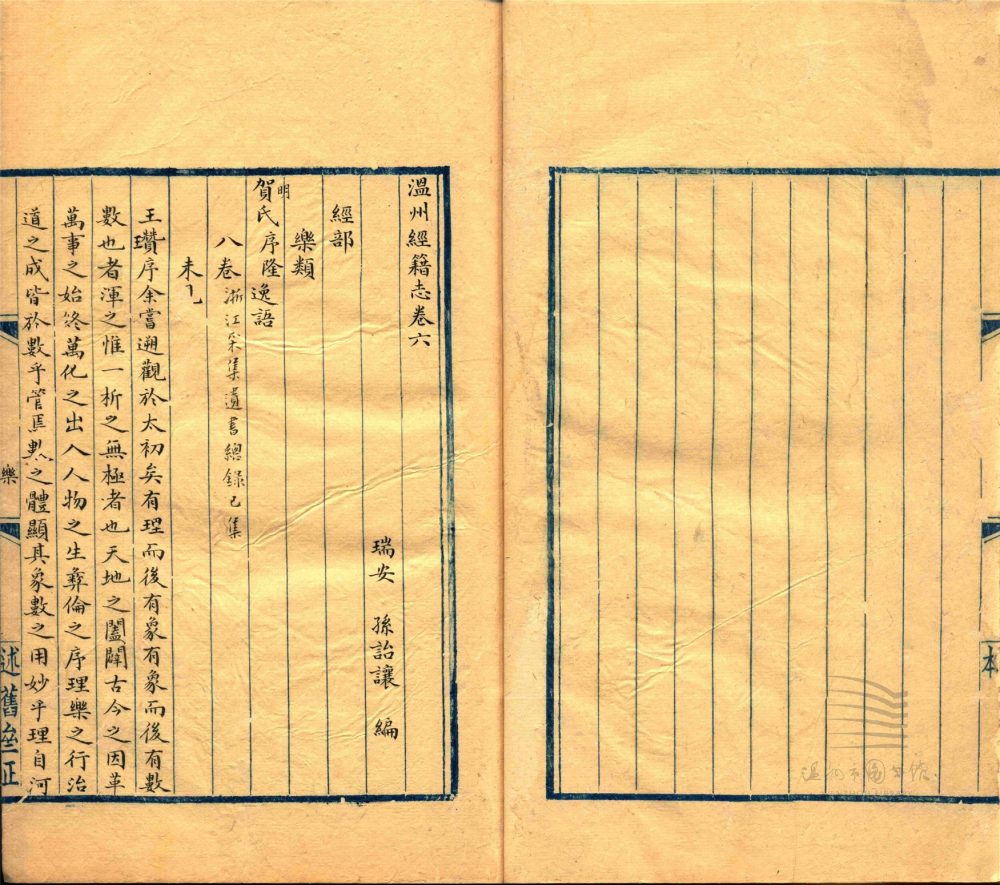 溫州經籍志卷六
瑞安 孫詒讓 編
經部
樂類
明
賀氏序隆逸語
八卷浙江采集遺書總錄乙集
未
王瓚序余嘗遡觀於太初矣有理而後有象有象而後有數
數也者渾之惟一析之無極者也天地之闔闢古今之因革
萬事之始終萬化之出入人物之生彝倫之序理樂之行治
道之成皆於數乎管焉數之體顯其象數之用妙乎理自河
樂
述舊
本
溫州市圖書館